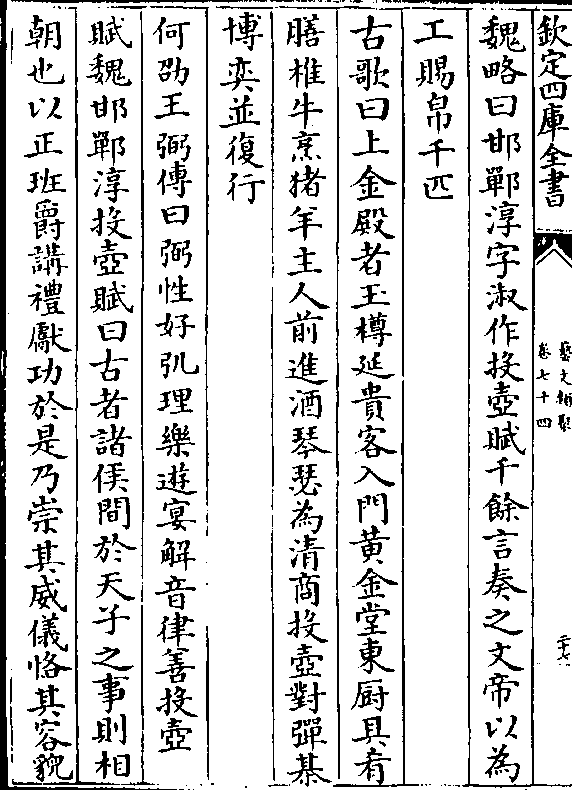 欽定四庫全書
藝文類聚
卷七十四
二十七
魏略曰邯鄲淳字淑作投壺賦千餘言奏之文帝以為
工賜帛千匹
古歌曰上金殿者玉樽延貴客入門黄金堂東厨具肴
膳椎牛烹猪羊主人前進酒琴瑟為清商投壺對彈棊
博奕並復行
何劭王弼傳曰弼性好𢎞理樂遊宴解音律善投壺
賦魏邯鄲淳投壺賦曰古者諸侯間於天子之事則相
朝也以正班爵講禮獻功於是乃崇其威儀恪其容貌